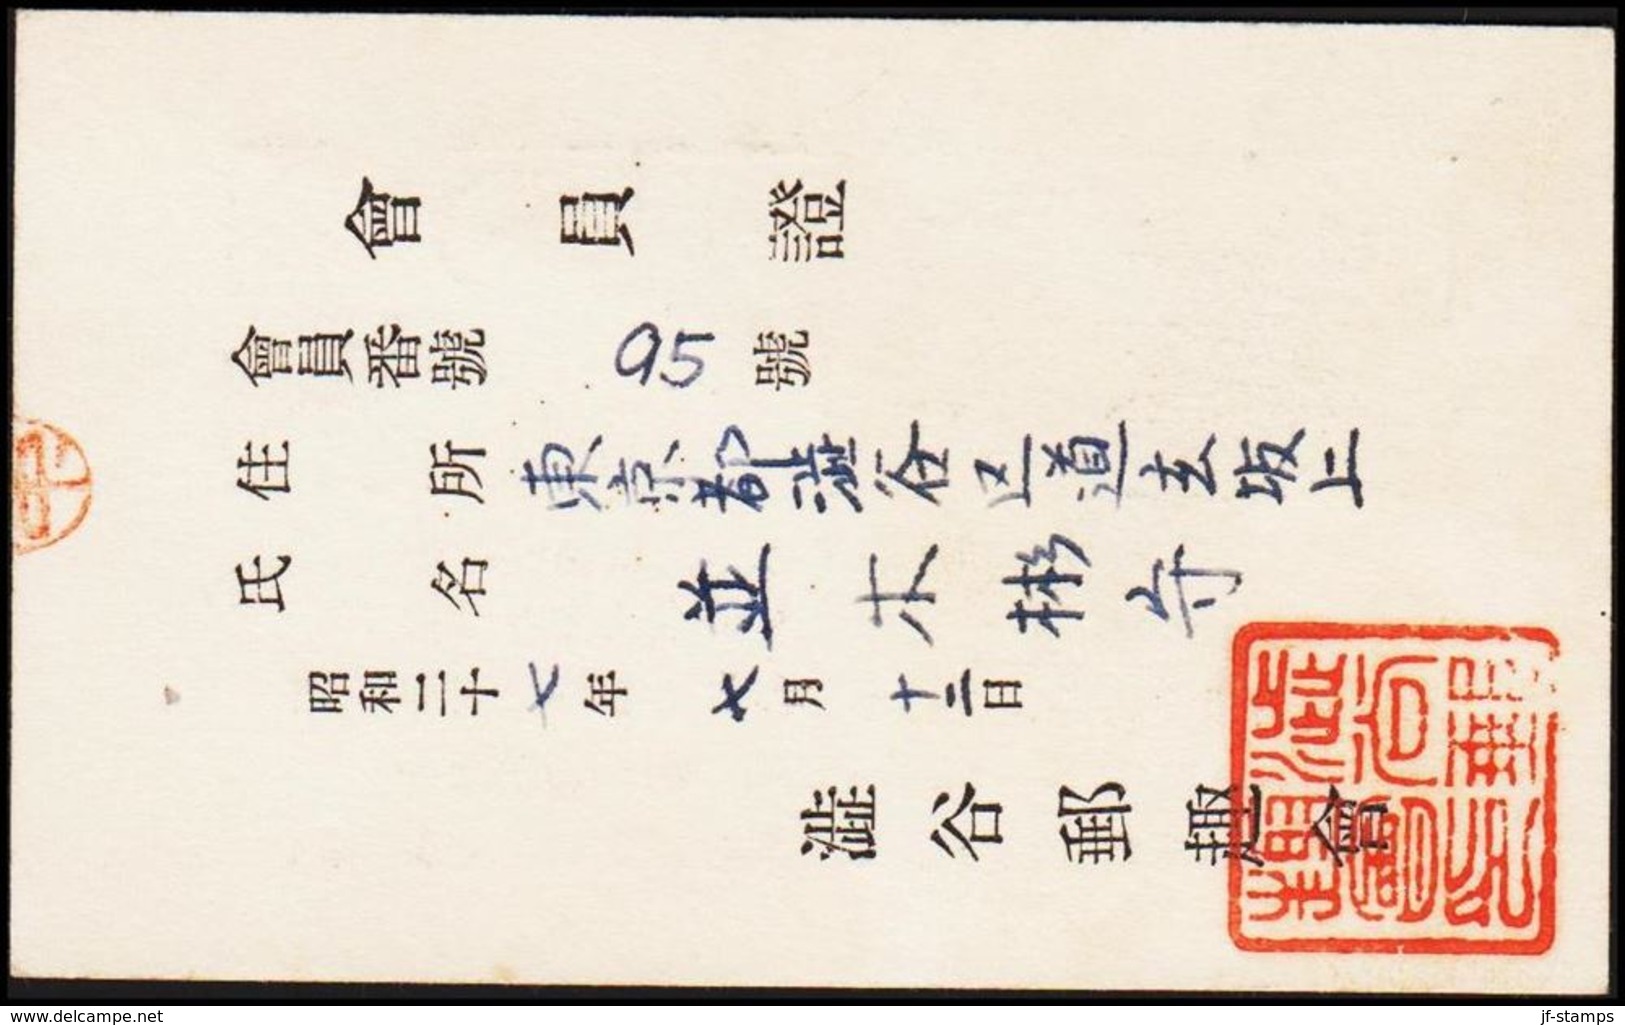 會員證
會員番號 95 號
住所 東京都澁谷区道玄坂上
氏名 並木彬守
昭和二十七年 七月 十二日
澁谷郵趣會
delcampe.net
jf-stamps